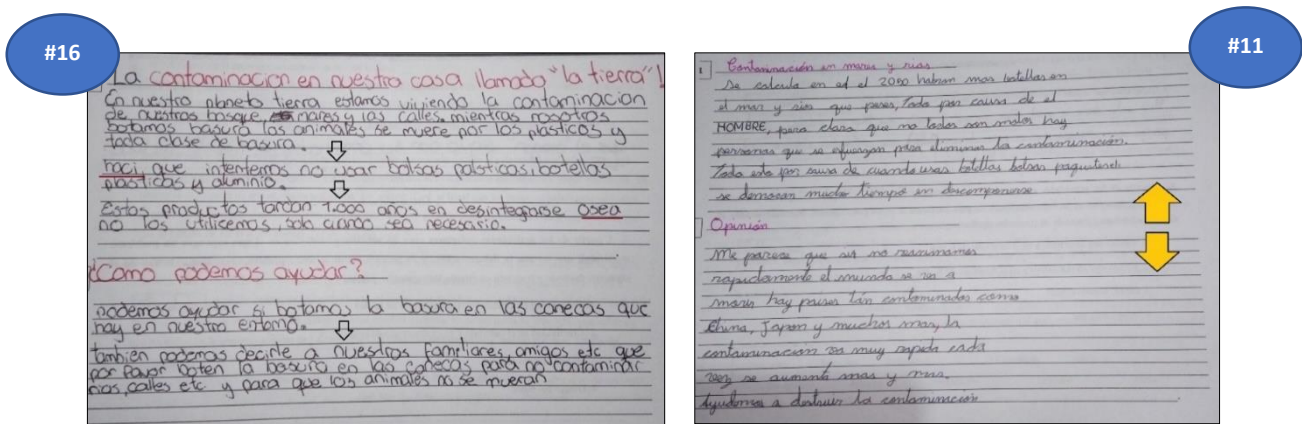 #16
La contaminacion en nuestra casa llamado "la tierra"!
En nuestro planeta tierra estamos viviendo la contaminacion
de nuestros bosque, mares y las calles. mientras nosotros
botamos basura los animales se muere por los plasticos y
toda clase de basura.
haci que intentemos no usar bolsas palsticas, botellas
plasticas y aluminio.
Estos productos tardan 1.000 años en desintegrarse osea
no los utilicemos, solo cuando sea necesario.
¿Como podemos ayudar?
podemos ayudar si botamos la basura en las canecas que
hay en nuestro entorno.
tambien podemos decirle a nuestros familiares, amigos etc que
por favor boten la basura en las canecas para no contaminar
rios, calles etc y para que los animales no se mueran
#11
Contaminación en mares y rios
Se calcula en el 2050 habran mas botellas en
el mar y rios que peces, Todo por causa de el
HOMBRE, pero claro que no todos son malos hay
personas que se esfuerzan para eliminar la contaminación.
Todo esto por causa de cuando usas botellas bolsas
se demoran mucho tiempo en descomponerse
Opinión
Me parece que si no reaccionamos
rapidamente el mundo se va a
morir hay paises tan contaminados como
China, Japon y muchos mas, la
contaminación va muy rapida cada
vez se aumenta mas y mas.
Ayudemos a destruir la contaminación